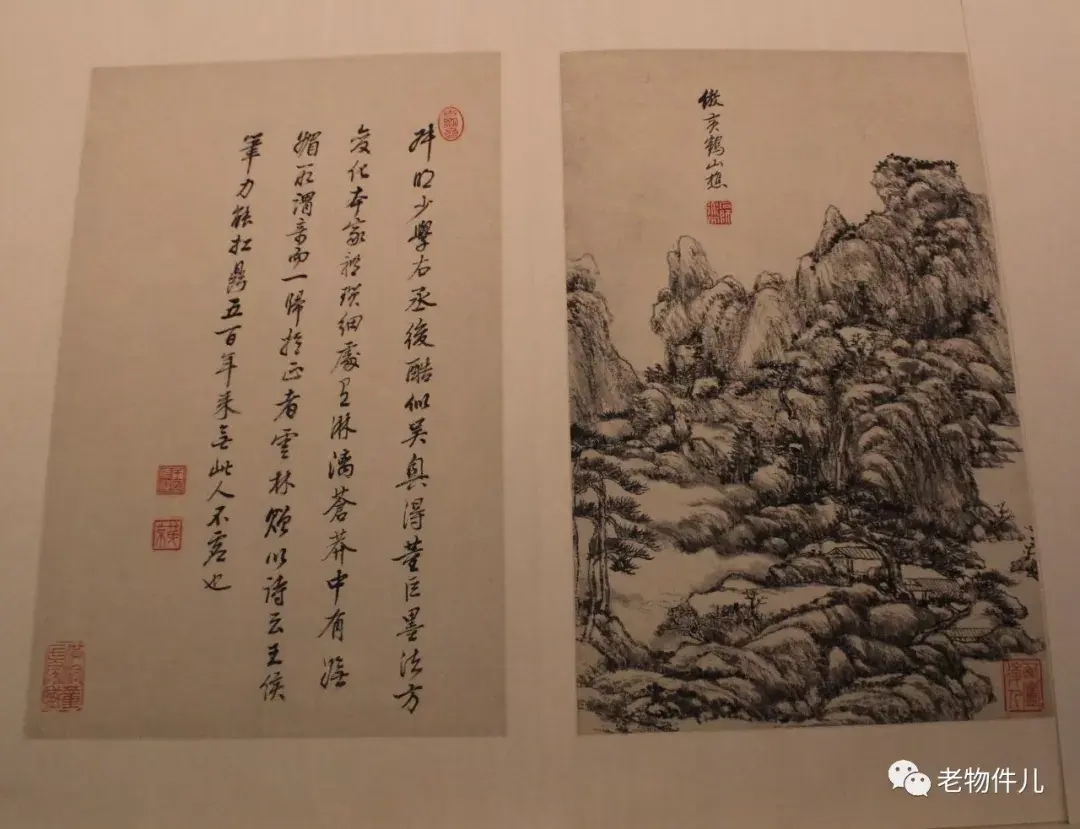 倣黃鶴山樵
叔明少學右丞後酷似吳興得董巨墨法方
變化本家體瑣細處有淋漓蒼莽中有嫵
媚所謂奇而一歸於正者雲林贈以詩云王侯
筆力能扛鼎五百年來無此人不虛也
老物件儿